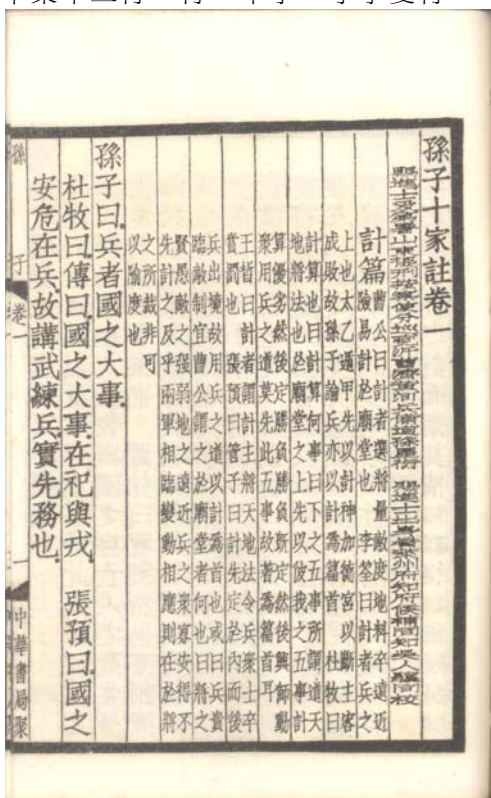 孫子十家註卷一
賜進士及第署山東提刑按察使分巡兗沂曹濟黃河兵備道孫星衍 賜進士出身署萊州府知府候補同知吳人驥同校
計篇
曹公曰計者選將量敵度地料卒遠近
險易計於廟堂也 李筌曰計者兵之
上也太乙遁甲先以計神加德宮以斷主客
成敗故孫子論兵亦以計為篇首 杜牧曰
計算也曰計算何事曰下之五事所謂道天
地將法也於廟堂之上先以彼我之五事計
算優劣然後定勝負勝負既定然後興師動
衆用兵之道莫先此五事故著為篇首耳
王晳曰計者謂計主將天地法令兵衆士卒
賞罰也 張預曰管子曰計先定於內而後
兵出境故用兵之道以計為首也或曰兵貴
臨敵制宜曹公謂之於廟堂者何也曰將之
賢愚敵之強弱地之遠近兵之衆寡安得不
先計之及乎兩軍相臨變動相應則在於將
之所裁非可
以隃度也
孫子曰.兵者國之大事.
杜牧曰.傳曰.國之大事.在祀與戎. 張預曰.國之
安危在兵.故講武練兵.實先務也.
孫子 卷一 一 中華書局聚